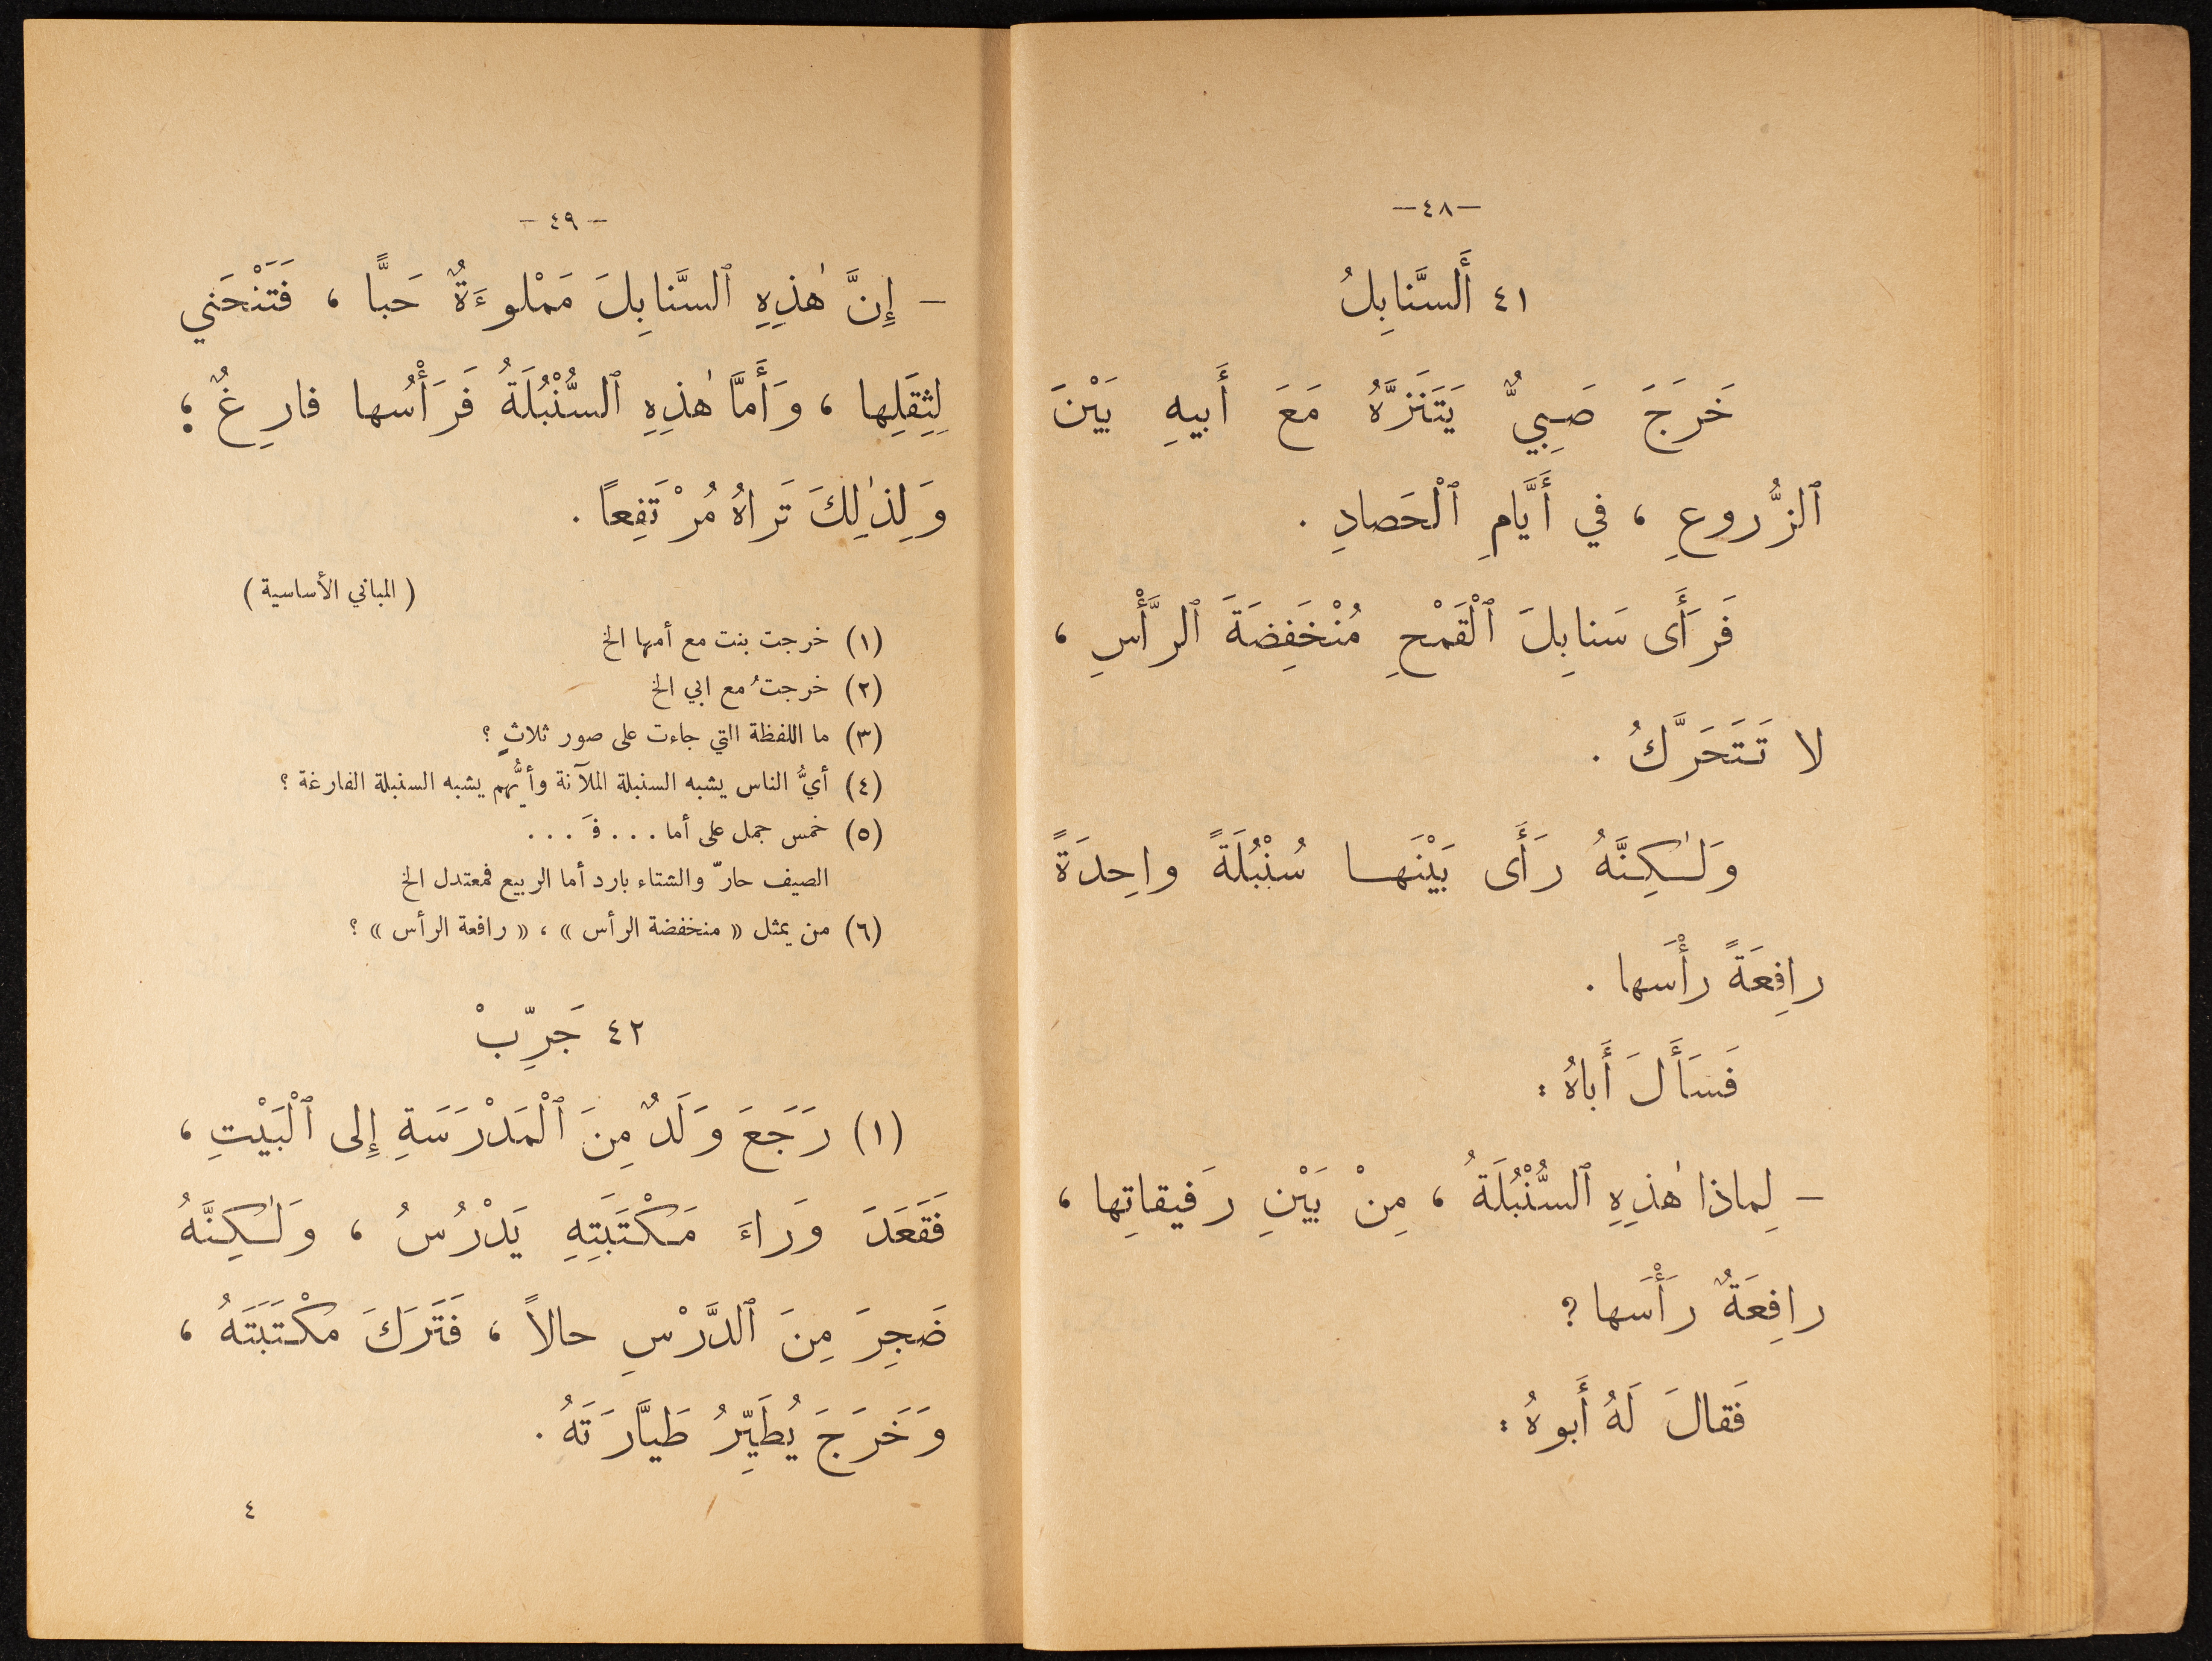 —٤٨—
٤١ أَلسَّنابِلُ
خَرَجَ صَبِيٌّ يَتَنَزَّهُ مَعَ أَبيهِ بَيْنَ
ٱلزُّروعِ ، في أَيَّامِ ٱلْحَصادِ .
فَرَأَى سَنابِلَ ٱلْقَمْحِ مُنْخَفِضَةَ ٱلرَّأْسِ ،
لا تَتَحَرَّكُ .
وَلٰكِنَّهُ رَأَى بَيْنَها سُنْبُلَةً واحِدَةً
رافِعَةً رأْسَها .
فَسَأَلَ أَباهُ :
– لِماذا هٰذِهِ ٱلسُّنْبُلَةُ ، مِنْ بَيْنِ رَفيقاتِها ،
رافِعَةٌ رَأْسَها ?
فَقالَ لَهُ أَبوهُ :
– ٤٩ –
– إِنَّ هٰذِهِ ٱلسَّنابِلَ مَمْلوءَةٌ حَبًّا ، فَتَنْحَني
لِثِقَلِها ، وَأَمَّا هٰذِهِ ٱلسُّنْبُلَةُ فَرَأْسُها فارِغٌ ؛
وَلِذٰلِكَ تَراهُ مُرْتَفِعًا .
( المباني الأساسية )
(١) خرجت بنت مع أمها الخ
(٢) خرجتُ مع ابي الخ
(٣) ما اللفظة التي جاءت على صور ثلاثٍ ؟
(٤) أيُّ الناس يشبه السنبلة الملآنة وأيُّهم يشبه السنبلة الفارغة ؟
(٥) خمس جمل على أما . . . فَ . . .
الصيف حارّ والشتاء بارد أما الربيع فمعتدل الخ
(٦) من يمثل « منخفضة الرأس » ، « رافعة الرأس » ؟
٤٢ جَرِّبْ
(١) رَجَعَ وَلَدٌ مِنَ ٱلْمَدْرَسَةِ إِلى ٱلْبَيْتِ ،
فَقَعَدَ وَراءَ مَكْتَبَتِهِ يَدْرُسُ ، وَلٰكِنَّهُ
ضَجِرَ مِنَ ٱلدَّرْسِ حالاً ، فَتَرَكَ مكْتَبَتَهُ ،
وَخَرَجَ يُطَيِّرُ طَيَّارَتَهُ .
٤